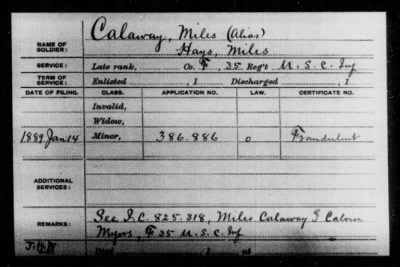 Calaway, Miles (Alias)
NAME OF SOLDIER: Hays, Miles
SERVICE: Late rank, Co. F, 35 Reg't U.S.C. Inf
TERM OF SERVICE: Enlisted , 1 Discharged , 1
DATE OF FILING. CLASS. APPLICATION NO. LAW. CERTIFICATE NO.
Invalid,
Widow,
1889 Jan 14 Minor, 386.886 o Fraudulent
ADDITIONAL SERVICES:
REMARKS: See I.C. 825.318, Miles Calaway I Calvin
Myers, F 35 U.S.C. Inf